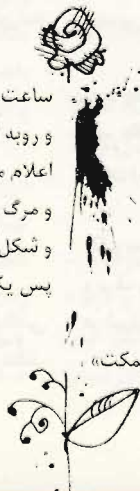 ساعت
و روبه
اعلام م
و مرگ
و شکل
پس یک
مکت»